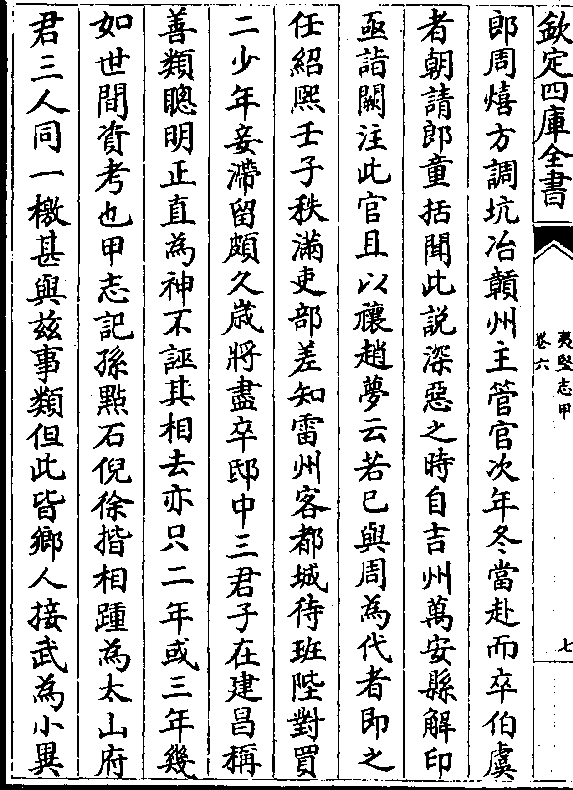 欽定四庫全書
夷堅志甲
卷六
七
郎周熺方調坑冶贛州主管官次年冬當赴而卒伯虞
者朝請郎童括聞此說深惡之時自吉州萬安縣解印
亟詣闕注此官且以禳趙夢云若已與周為代者即之
任紹熙壬子秩滿吏部差知雷州客都城待班陛對買
二少年妾滯留頗久歲將盡卒邸中三君子在建昌稱
善類聰明正直為神不誣其相去亦只二年或三年幾
如世間資考也甲志記孫點石倪徐揩相踵為太山府
君三人同一檄甚與兹事類但此皆鄉人接武為小異